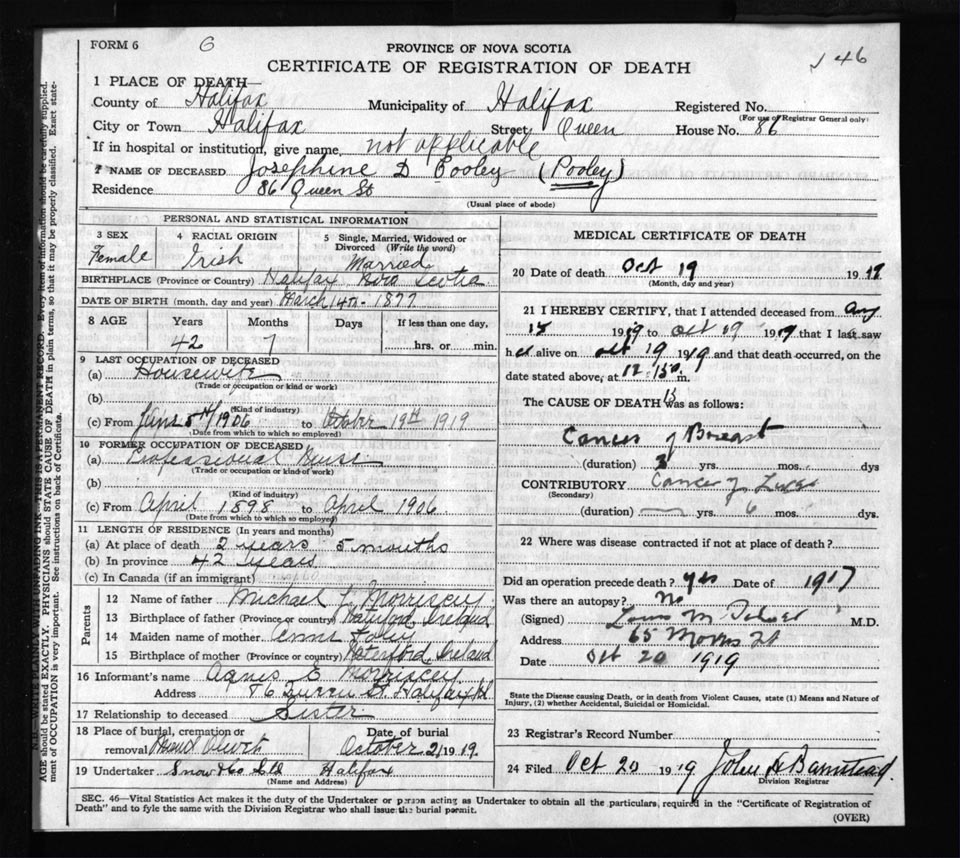 FORM 6 6 146
PROVINCE OF NOVA SCOTIA
CERTIFICATE OF REGISTRATION OF DEATH
1 PLACE OF DEATH
County of Halifax Municipality of Halifax Registered No.
(For use of Registrar General only)
City or Town Halifax Street Queen House No. 86
If in hospital or institution, give name not applicable
2 NAME OF DECEASED Josephine D Cooley (Pooley)
Residence 86 Queen St
(Usual place of abode)
PERSONAL AND STATISTICAL INFORMATION
3 SEX Female
4 RACIAL ORIGIN Irish
5 Single, Married, Widowed or Divorced (Write the word) Married
BIRTHPLACE (Province or Country) Halifax Nova Scotia
DATE OF BIRTH (month, day and year) March 14th - 1877
8 AGE Years Months Days If less than one day,
42 7 hrs. or min.
9 LAST OCCUPATION OF DECEASED
(a) Housewife
(Trade or occupation or kind of work)
(b)
(Kind of industry)
(c) From June 5th/1906 to October 19th 1919
(Date from which to which so employed)
10 FORMER OCCUPATION OF DECEASED
(a) Professional Nurse
(Trade or occupation or kind of work)
(b)
(Kind of industry)
(c) From April 1898 to April 1906
(Date from which to which so employed)
11 LENGTH OF RESIDENCE (In years and months)
(a) At place of death 2 years 5 months
(b) In province 42 years
(c) In Canada (if an immigrant)
Parents
12 Name of father Michael Morriscey
13 Birthplace of father (Province or country) Ireland
14 Maiden name of mother Foley
15 Birthplace of mother (Province or country) Waterford, Ireland
16 Informant's name Agnes E Morriscey
Address 86 Queen St. Halifax
17 Relationship to deceased Sister
18 Place of burial, cremation or removal Mount Olivet
Date of burial October 21 1919
19 Undertaker Snow & Co Ltd Halifax
(Name and Address)
MEDICAL CERTIFICATE OF DEATH
20 Date of death Oct 19 1919
(Month, day and year)
21 I HEREBY CERTIFY, that I attended deceased from Aug
15 1919 to Oct 19 1919 that I last saw
h alive on Oct 19 1919 and that death occurred, on the
date stated above, at 12.15 m.
The CAUSE OF DEATH was as follows:
Cancer of Breast
(duration) 3 yrs. mos. dys
CONTRIBUTORY Cancer of
(Secondary)
(duration) yrs. 6 mos. dys.
22 Where was disease contracted if not at place of death?
Did an operation precede death? yes Date of 1917
Was there an autopsy? No
(Signed) M M.D.
Address 65 Morris St
Date Oct 20 1919
State the Disease causing Death, or in death from Violent Causes, state (1) Means and Nature of
Injury, (2) whether Accidental, Suicidal or Homicidal.
23 Registrar's Record Number
24 Filed Oct 20 1919 John A Barnstead.
Division Registrar
SEC. 46—Vital Statistics Act makes it the duty of the Undertaker or person acting as Undertaker to obtain all the particulars, required in the "Certificate of Registration of
Death" and to fyle the same with the Division Registrar who shall issue the burial permit.
(OVER)
N.B.—WRITE PLAINLY WITH UNFADING INK—THIS IS A PERMANENT RECORD. Every item of information should be carefully supplied.
AGE should be stated EXACTLY. PHYSICIANS should STATE CAUSE OF DEATH in plain terms, so that it may be properly classified. Exact state-
ment of OCCUPATION is very important. See instructions on back of Certificate.